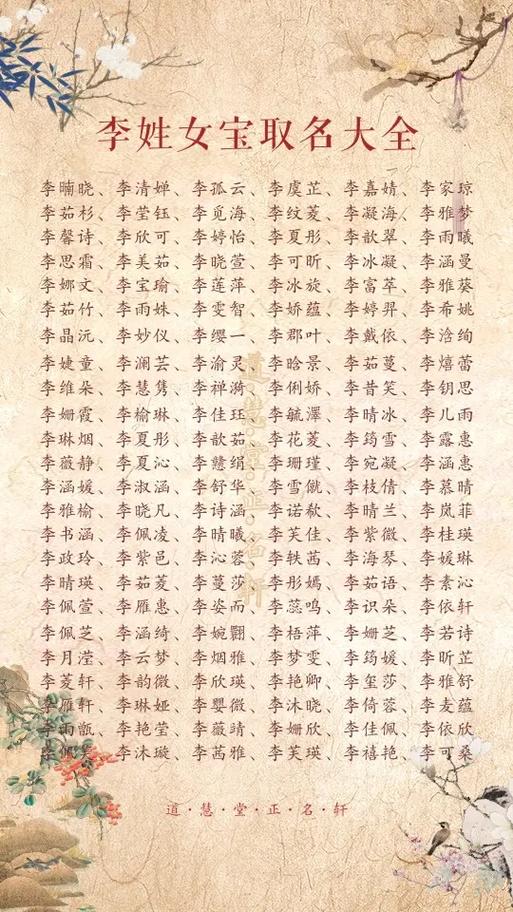 李姓女宝取名大全
李暔晓、李清婵、李孤云、李虞芷、李嘉婧、李家琼
李茹杉、李莹钰、李觅海、李纹菱、李凝海、李雅梦
李馨诗、李欣可、李婷怡、李夏彤、李歆翠、李雨曦
李思霜、李美茹、李晓萱、李可昕、李冰凝、李涵曼
李娜文、李宝瑜、李莲萍、李冰旋、李富萃、李雅葵
李茹竹、李雨姝、李雯智、李娇蕴、李婷羿、李希姚
李晶沅、李妙仪、李缨一、李郡叶、李戴依、李浛绚
李婕童、李澜芸、李渝灵、李晗景、李茹蔓、李熺蕾
李维朵、李慧隽、李禅漪、李俐娇、李昔笑、李钥思
李姗霞、李榆琳、李佳珏、李毓澤、李晴冰、李儿雨
李琳烟、李夏彤、李歆茹、李花菱、李筠雪、李露惠
李薇静、李夏沁、李戆绢、李珊瑾、李宛凝、李涵惠
李涵媛、李淑涵、李舒华、李雪僦、李枝倩、李慕晴
李雅榆、李晓凡、李诗涵、李诺欷、李晴兰、李岚菲
李书涵、李佩凌、李晴曦、李芙佳、李紫微、李桂瑛
李政玲、李紫邑、李沁蓉、李轶茜、李海琴、李媛琳
李晴瑛、李茹菱、李蔓莎、李彤嫣、李茹语、李素沁
李佩萱、李雁惠、李姿而、李蕊鸣、李识朵、李依轩
李佩芝、李涵绮、李婉翾、李梧萍、李姗芝、李若诗
李月滢、李云梦、李烟雅、李梦雯、李筠媛、李昕芷
李菱轩、李韵微、李欣瑛、李艳卿、李玺莎、李雅舒
李雁轩、李琳娅、李婴微、李沐晓、李倚蓉、李麦蕴
李雨甑、李艳莹、李薇靖、李姗欣、李佳佩、李依欣
李佩、李沐璇、李茜雅、李芙瑛、李禧艳、李可桑
道·慧·堂·正·名·轩